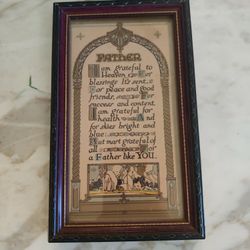 FATHER
I am grateful to
Heaven for
blessings it's sent,
For peace and good
friends, For
success and content
I am grateful for
health And
for skies bright and
blue
But most grateful of
all For
a Father like YOU.